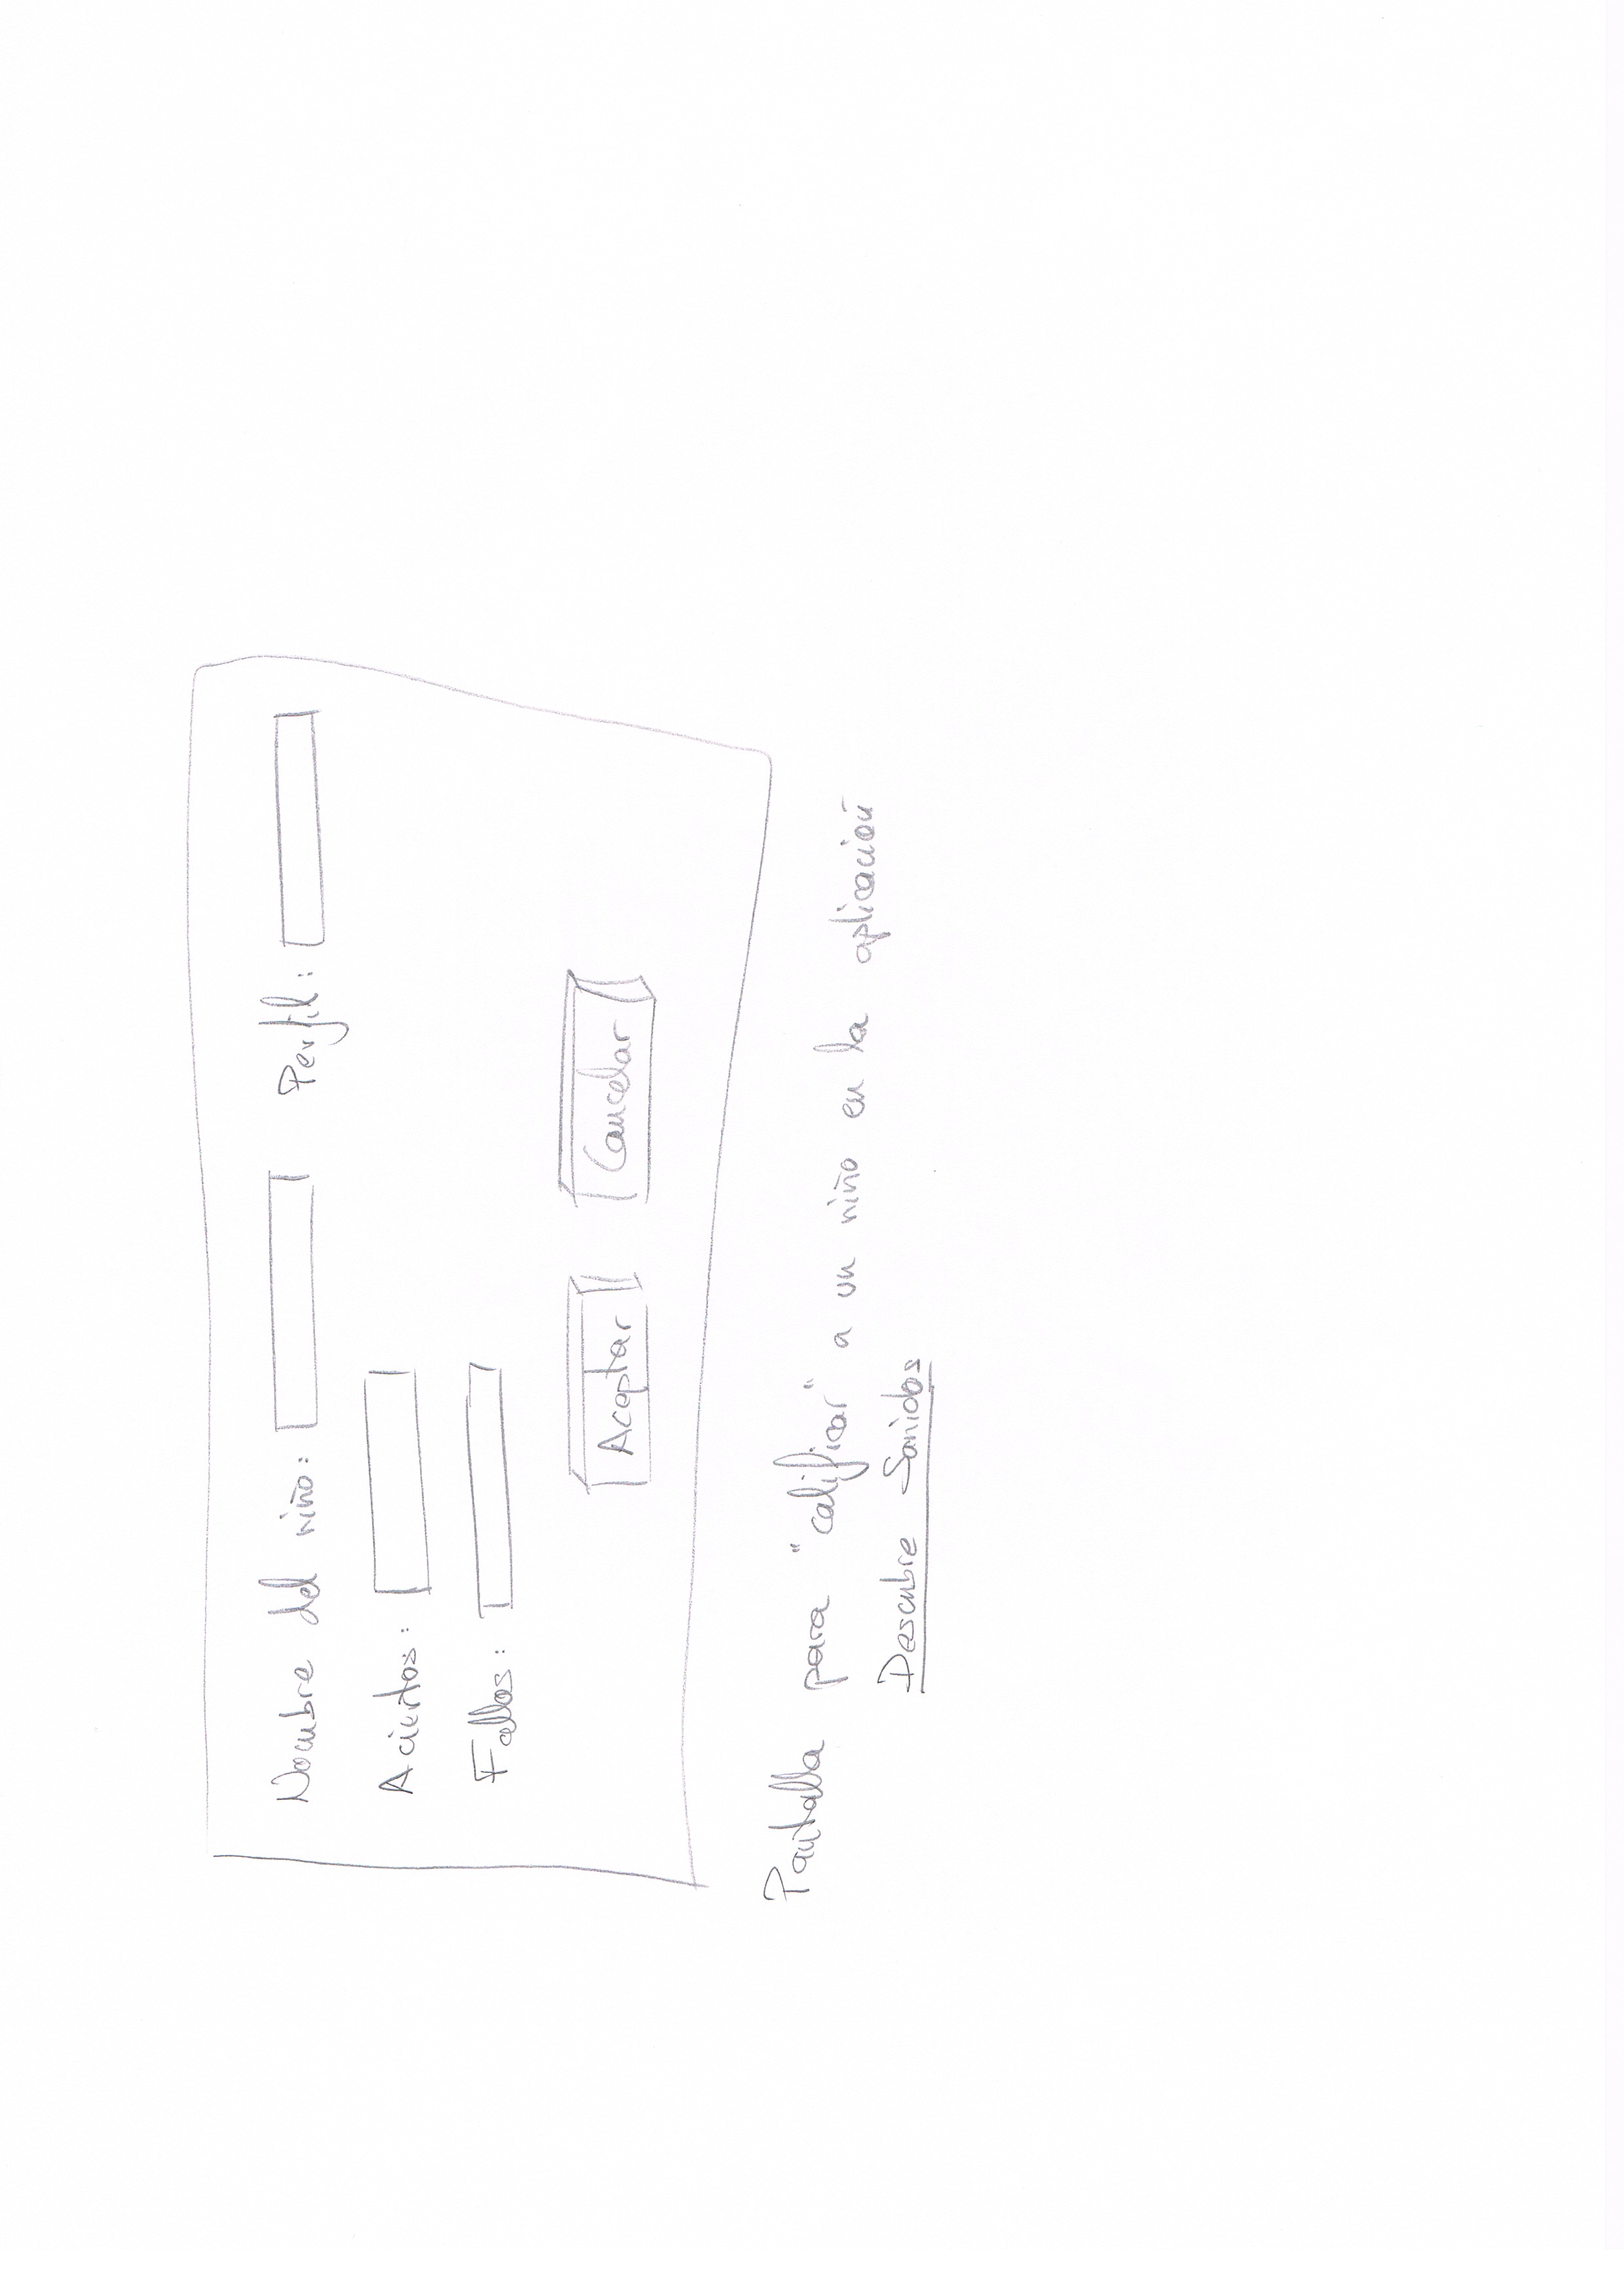 Nombre del niño: Perfil:
Aciertos:
Fallos:
Aceptar Cancelar
Pantalla para "calificar" a un niño en la aplicación
Descubre Sonidos